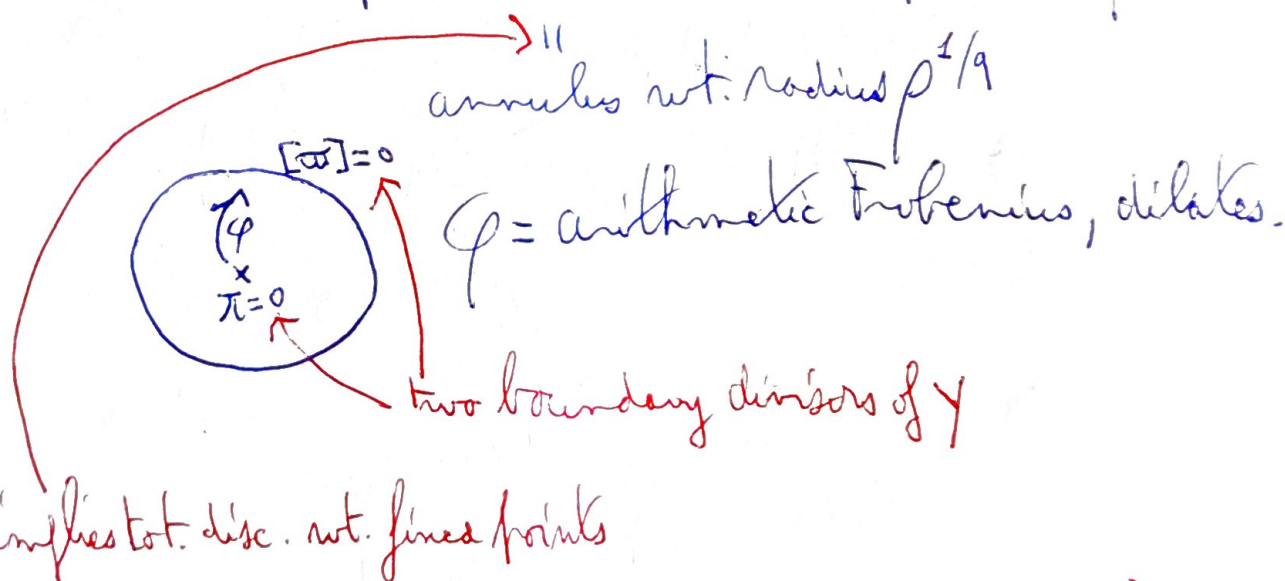 "
annulus wt. radius ρ^{1/q}
[ϖ]=0
φ
φ = arithmetic Frobenius, dilates.
×
π=0
two boundary divisors of Y
implies tot. disc. wt. fixed points